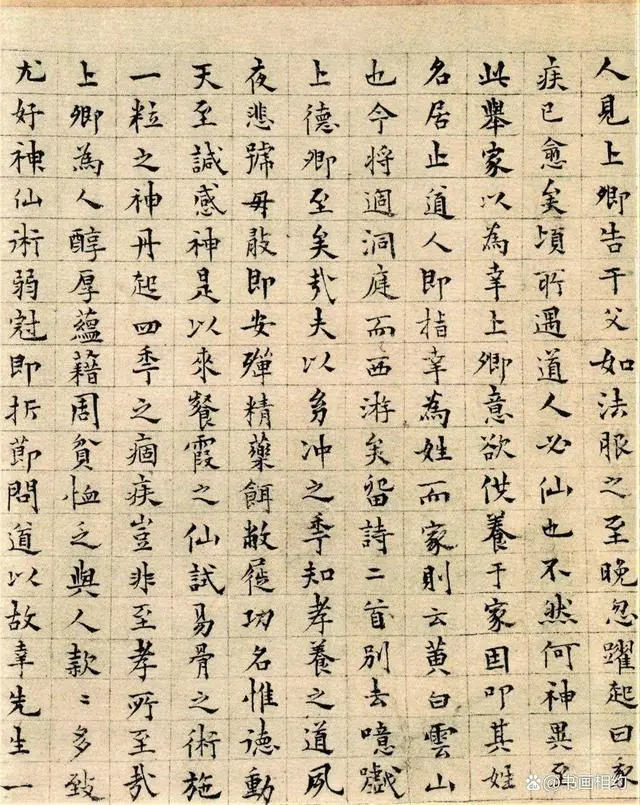 人見上卿告干父如法服之至晚忽躍起曰
疾已愈矣頃所遇道人必仙也不然何神異至
此舉家以為幸上卿意欲供養于家因叩其姓
名居止道人即指幸為姓而家則云黄白雲山
也今將過洞庭而西游矣留詩二首別去噫嚱
上德卿至矣哉夫以㓜冲之秊知孝養之道夙
夜悲號毋敢即安殫精藥餌敝屣功名惟德動
天至諴感神是以來餐霞之仙試易骨之術施
一粒之神丹起四秊之痼疾豈非至孝所至哉
上卿為人醇厚蘊藉周貧恤乏與人款〻多致
尤好神仙術弱冠即折節問道以故幸先生一
书画相约